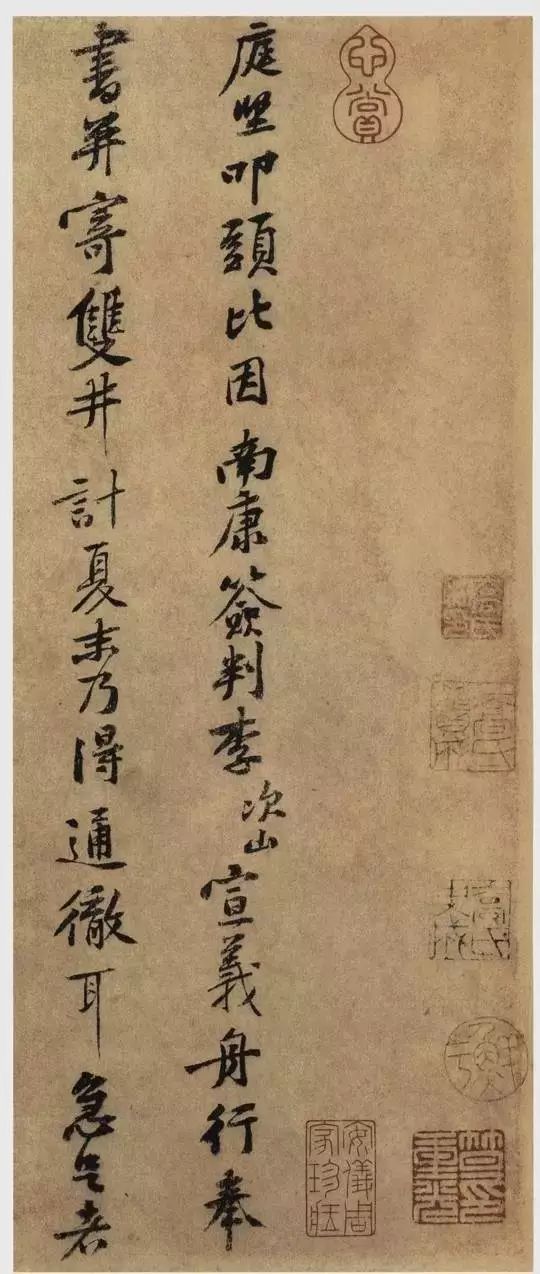 庭坚叩頭比因南康簽判李次山宣義舟行奉
書并寄雙井計夏末乃得通徹耳急足者
安儀周家珍藏